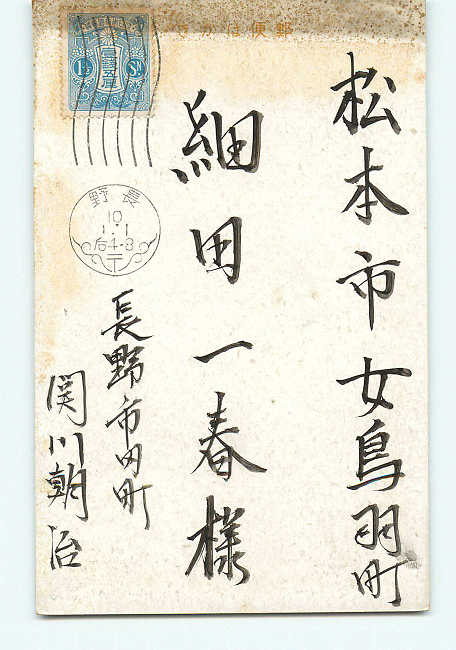 郵便はがき
松本市女鳥羽町
細田一春様
長野市田町
関川朝治
1½ Sn
長野
10
1.1
后4-8